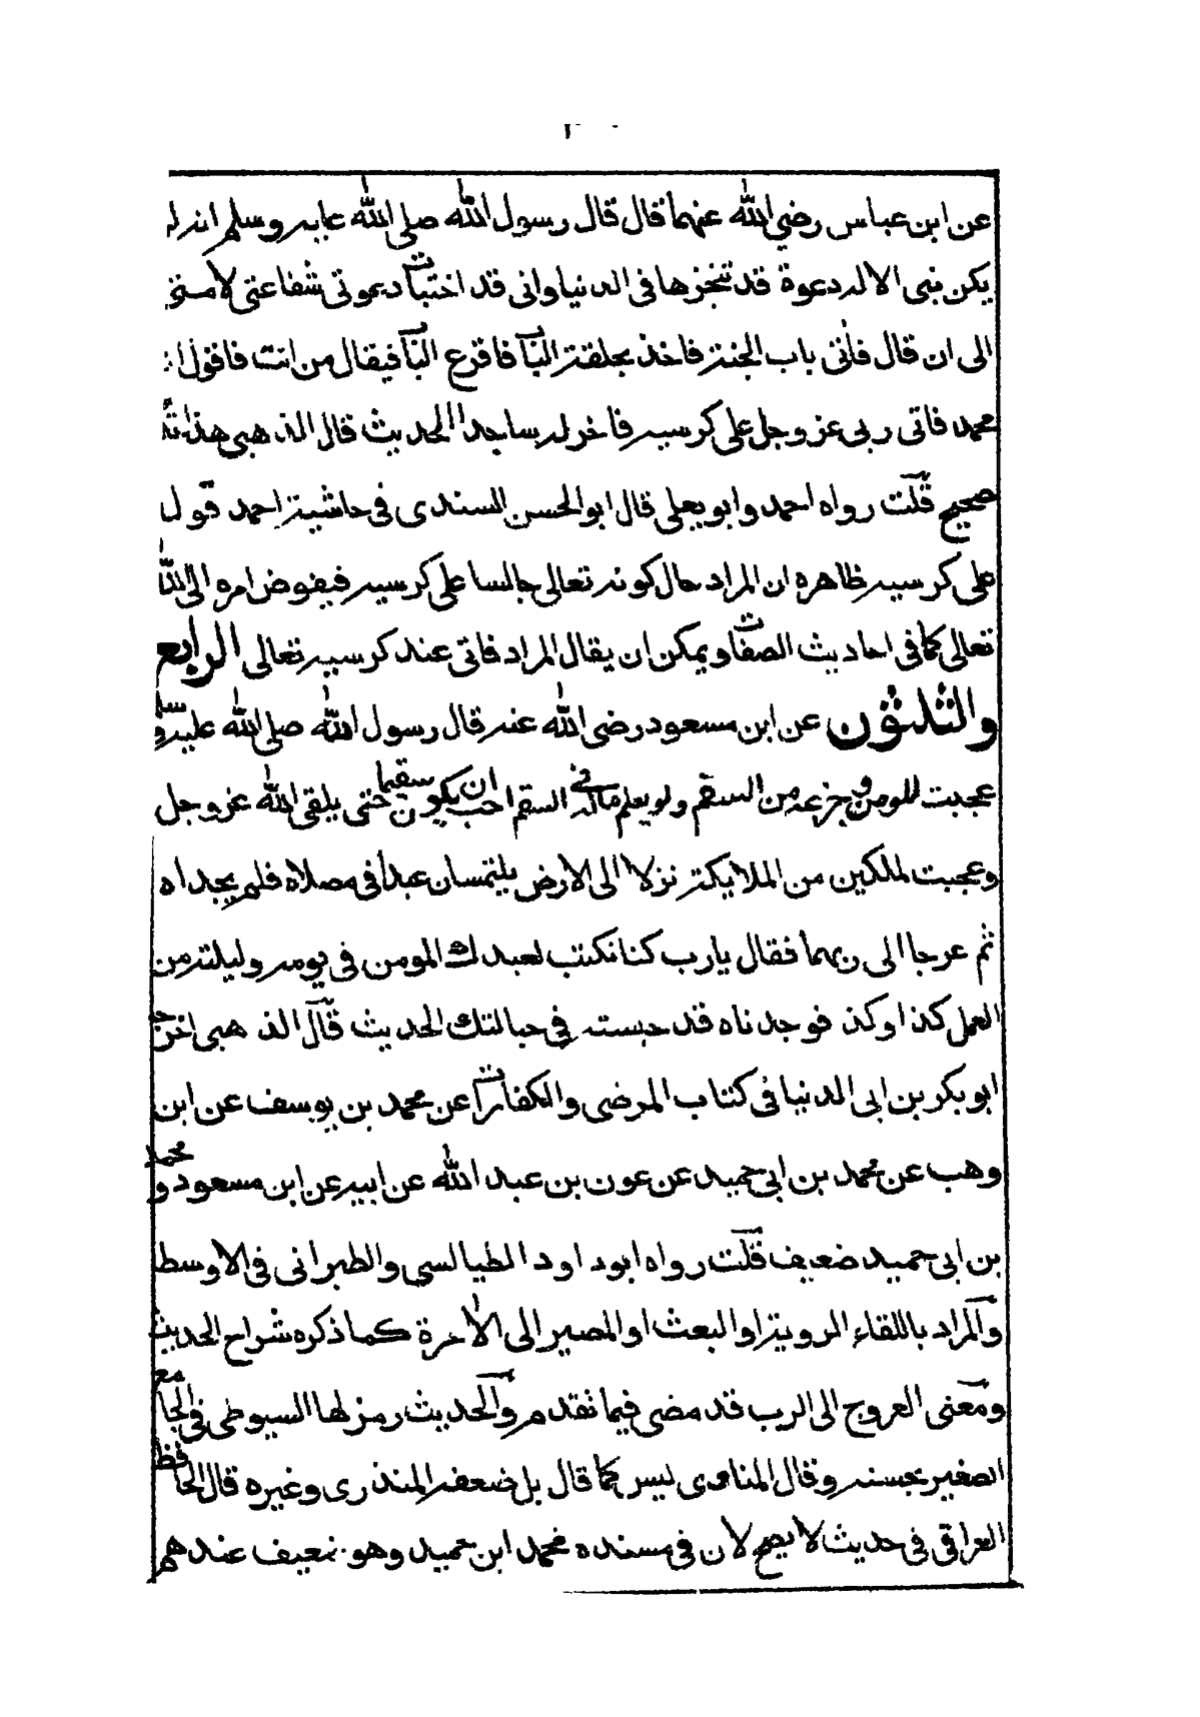 عن ابن عباس رضي الله عنهما قال قال رسول الله صلى الله عليه وسلم انه لم
يكن نبى الا له دعوة قد تنجزها فى الدنيا وانى قد اختبات دعوتى شفاعتى لامتى
الى ان قال فأتى باب الجنة فاخذ بحلقة الباب فاقرع الباب فيقال من انت فاقول انا
محمد فاتى ربى عز وجل على كرسيه فاخر له ساجدا الحديث قال الذهبى هذا
صحيح قلت رواه احمد وابو يعلى قال ابو الحسن السندى فى حاشية احمد قوله
على كرسيه ظاهره ان المراد حال كونه تعالى جالسا على كرسيه فيفوض امره الى الله
تعالى كما فى احاديث الصفات ويمكن ان يقال المراد فاتى عند كرسيه تعالى الرابع
والثلثون عن ابن مسعود رضى الله عنه قال رسول الله صلى الله عليه وسلم
عجبت للمومن وجزعه من السقم ولو يعلم ماله فى السقم احب ان يكون سقيما حتى يلقى الله عز وجل
وعجبت لملكين من الملايكة نزلا الى الارض يلتمسان عبدا فى مصلاه فلم يجداه
ثم عرجا الى ربهما فقال يارب كنا نكتب لعبدك المومن فى يومه وليلته من
العمل كذا وكذا فوجدناه قد حبسته فى حبالتك الحديث قال الذهبى اخرجه
ابو بكر بن ابى الدنيا فى كتاب المرضى والكفارات عن محمد بن يوسف عن ابن
وهب عن محمد بن ابى حميد عن عون بن عبد الله عن ابيه عن ابن مسعود ومحمد
بن ابى حميد ضعيف قلت رواه ابو داود الطيالسى والطبرانى فى الاوسط
والمراد باللقاء الروية او البعث او المصير الى الاخرة كما ذكره شراح الحديث
ومعنى العروج الى الرب قد مضى فيما تقدم والحديث رمز لها السيوطى فى الجامع
الصغير بحسنه وقال المناوى ليس كما قال بل ضعفه المنذرى وغيره قال الحافظ
العراقى فى حديث لا يصح لان فى مسنده محمد ابن حميد وهو ضعيف عندهم